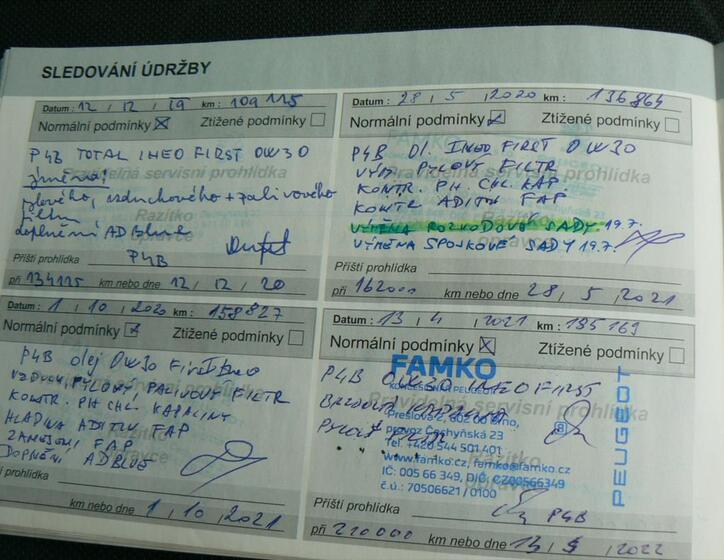 SLEDOVÁNÍ ÚDRŽBY
Datum : 12 / 12 / 19 km : 109 115
Normální podmínky Ztížené podmínky
P4B TOTAL INEO FIRST 0W30
Pravidelná servisní prohlídka
pylového, vzduchového + palivového
filtru
Razítko
opravce
doplnění AD Blue
P4B
Příští prohlídka
při 134115 km nebo dne 12 / 12 / 20
Datum : 28 / 5 / 2020 km : 136 864
Normální podmínky Ztížené podmínky
P4B Ol. INEO FIRST 0W30
VÝM. PYLOVÝ FILTR
Pravidelná servisní prohlídka
KONTR. PH. CHL. KAP.
KONTR ADITIV FAP
VÝMĚNA ROZVODOVÉ SADY. 19.7.
VÝMĚNA SPOJKOVÉ SADY 19.7.
Příští prohlídka
při 162000 km nebo dne 28 / 5 / 2021
Datum : 1 / 10 / 2020 km : 158827
Normální podmínky Ztížené podmínky
P4B olej 0W30 First Ineo
VZDUCH, PYLOVÝ, PALIVOVÝ FILTR
KONTR. PH CHL. KAPALINY
HLADINA ADITIV FAP
ZANESENÍ FAP
DOPNĚNÍ ADBLUE
prohlídka
km nebo dne 1 / 10 / 2021
Datum : 13 / 4 / 2021 km : 185 169
Normální podmínky Ztížené podmínky
FAMKO
P4B 0W30 INEO FIRST
Pravidelná servisní prohlídka
Přeslova 2, 602 00 Brno,
provoz Čechyňská 23
Tel. +420 544 501 401
www.famko.cz, famko@famko.cz
IČ: 005 66 349, DIČ: CZ00566349
č.ú.: 70506621 / 0100
PEUGEOT
Razítko
opravce
P4B
Příští prohlídka
při 210000 km nebo dne 13 / 5 / 2022